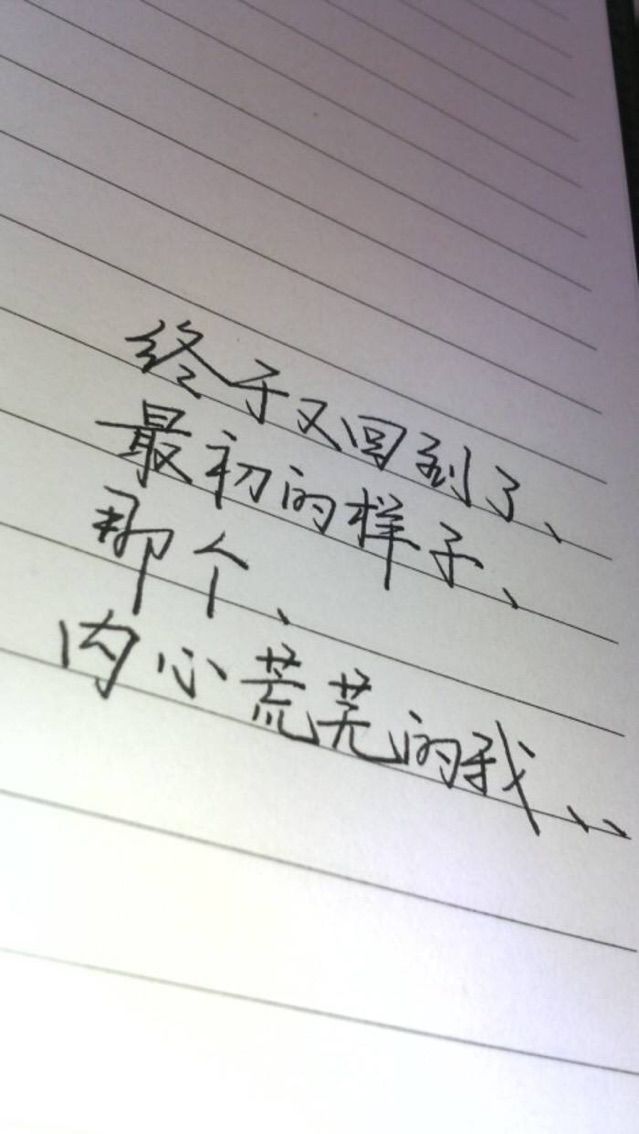 终于又回到了、
最初的样子、
那个、
内心荒芜的我、、、